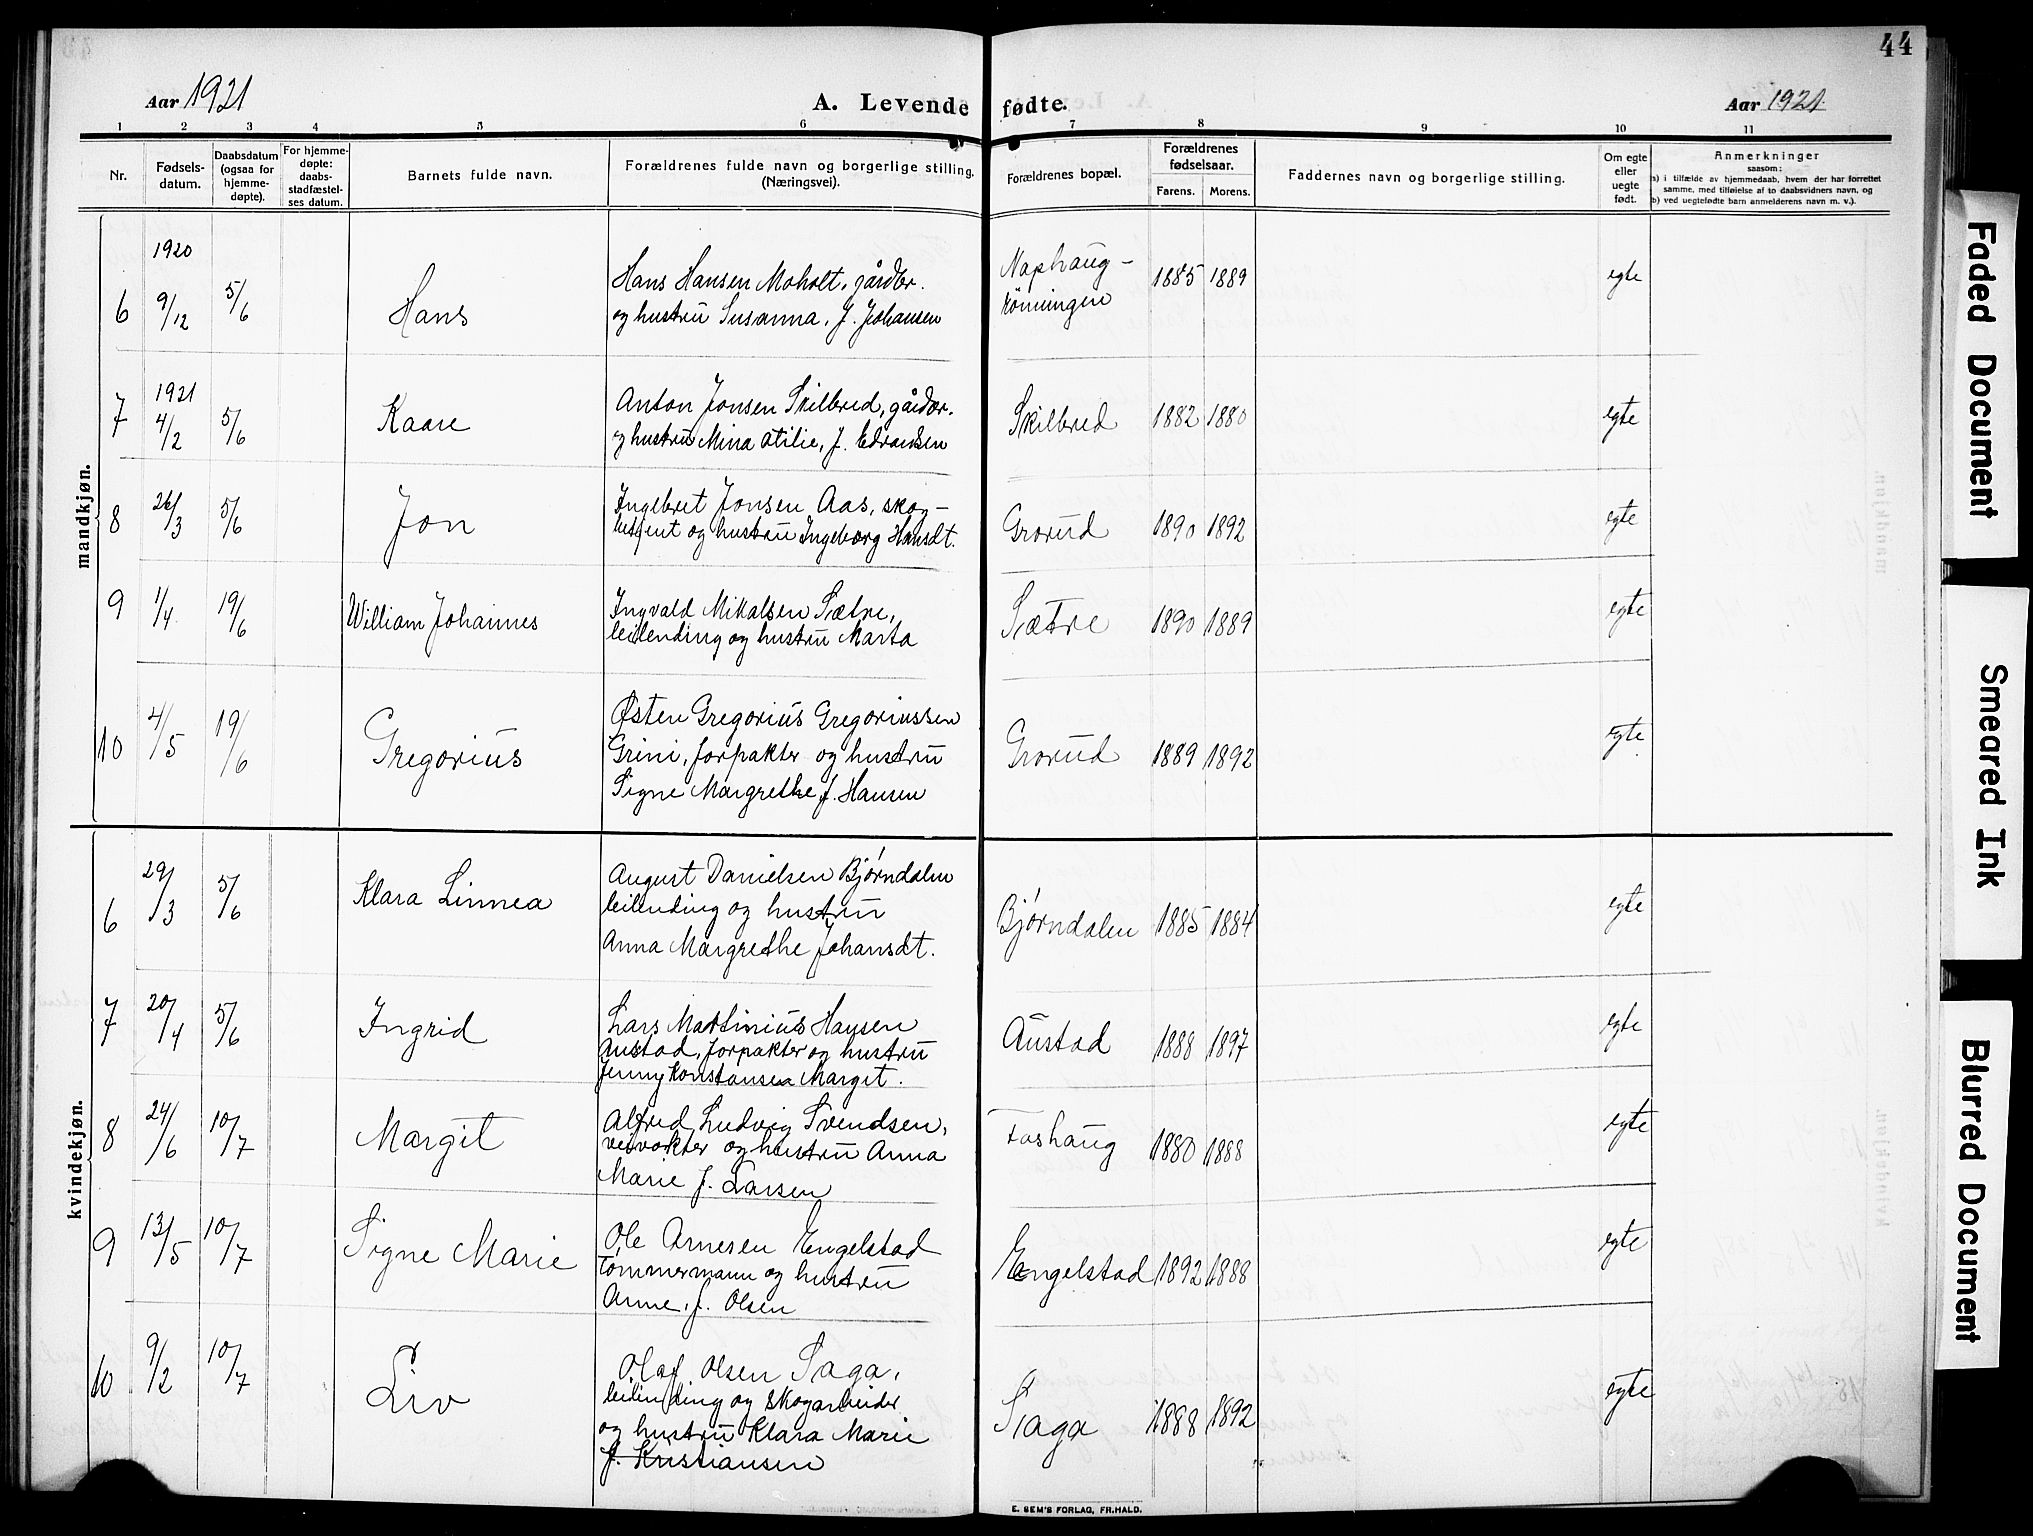 44
Aar 1921
A. Levende fødte.
Aar 1921.
1 2 3 4 5 6 7 8 9 10 11
Nr.
Fødsels-
datum.
Daabsdatum
(ogsaa for
hjemme-
døpte).
For hjemme-
døpte:
daabs-
stadfæstel-
ses datum.
Barnets fulde navn.
Forældrenes fulde navn og borgerlige stilling.
(Næringsvei).
Forældrenes bopæl.
Forældrenes
fødselsaar.
Farens. Morens.
Faddernes navn og borgerlige stilling.
Om egte
eller
uegte
født.
Anmerkninger
saasom:
a) i tilfælde av hjemmedaab, hvem der har forrettet
samme, med tilføielse af to daabsvidners navn, og
b) ved uegtefødte barn anmelderens navn m. v.).
mandkjøn.
1920
6 9/12 5/6 Hans
Hans Hansen Moholt, gårdbr.
og hustru Susanna, f. Johansen
Naphaug-
1885 1889 egte
1921
7 4/2 5/6 Kaare
Anton Jonsen Skilbred, gårdbr.
og hustru Mina Otilie, f.
Skilbred 1882 1880 egte
8 26/3 5/6 Jon
Ingebret Jonsen Aas, skog-
betjent og hustru Ingeborg Hansdt.
Grorud 1890 1892 egte
9 1/4 19/6 William Johannes
Ingvald Mikalsen Sætre,
leilending og hustru Marta
Sætre 1890 1889 egte
10 4/5 19/6 Gregorius
Østen Gregorius Gregoriussen
Grini, forpakter og hustru
Signe Margrethe f. Hansen
Grorud 1889 1892 egte
kvindekjøn.
6 29/3 5/6 Klara Linnea
August Danielsen Bjørndalen
leilending og hustru
Anna Margrethe Johansdt.
Bjørndalen 1885 1884 egte
7 20/4 5/6 Ingrid
Lars Martinius Hansen
Austad, forpakter og hustru
Jenny Konstanse Margit.
Austad 1888 1897 egte
8 24/6 10/7 Margit
Alfred Ludvig Svendsen,
veivokter og hustru Anna
Marie f. Larsen
Foshaug 1880 1888 egte
9 13/5 10/7 Signe Marie
Ole Arnesen Engelstad
tømmermann og hustru
Anne, f. Olsen
Engelstad 1892 1888 egte
10 9/2 10/7 Liv
Olaf Olsen Saga,
leilending og skogarbeider
og hustru Klara Marie
f. Kristiansen
Saga 1888 1892 egte
E. SEM'S FORLAG, FR.HALD.
Faded Document
Smeared Ink
Blurred Document